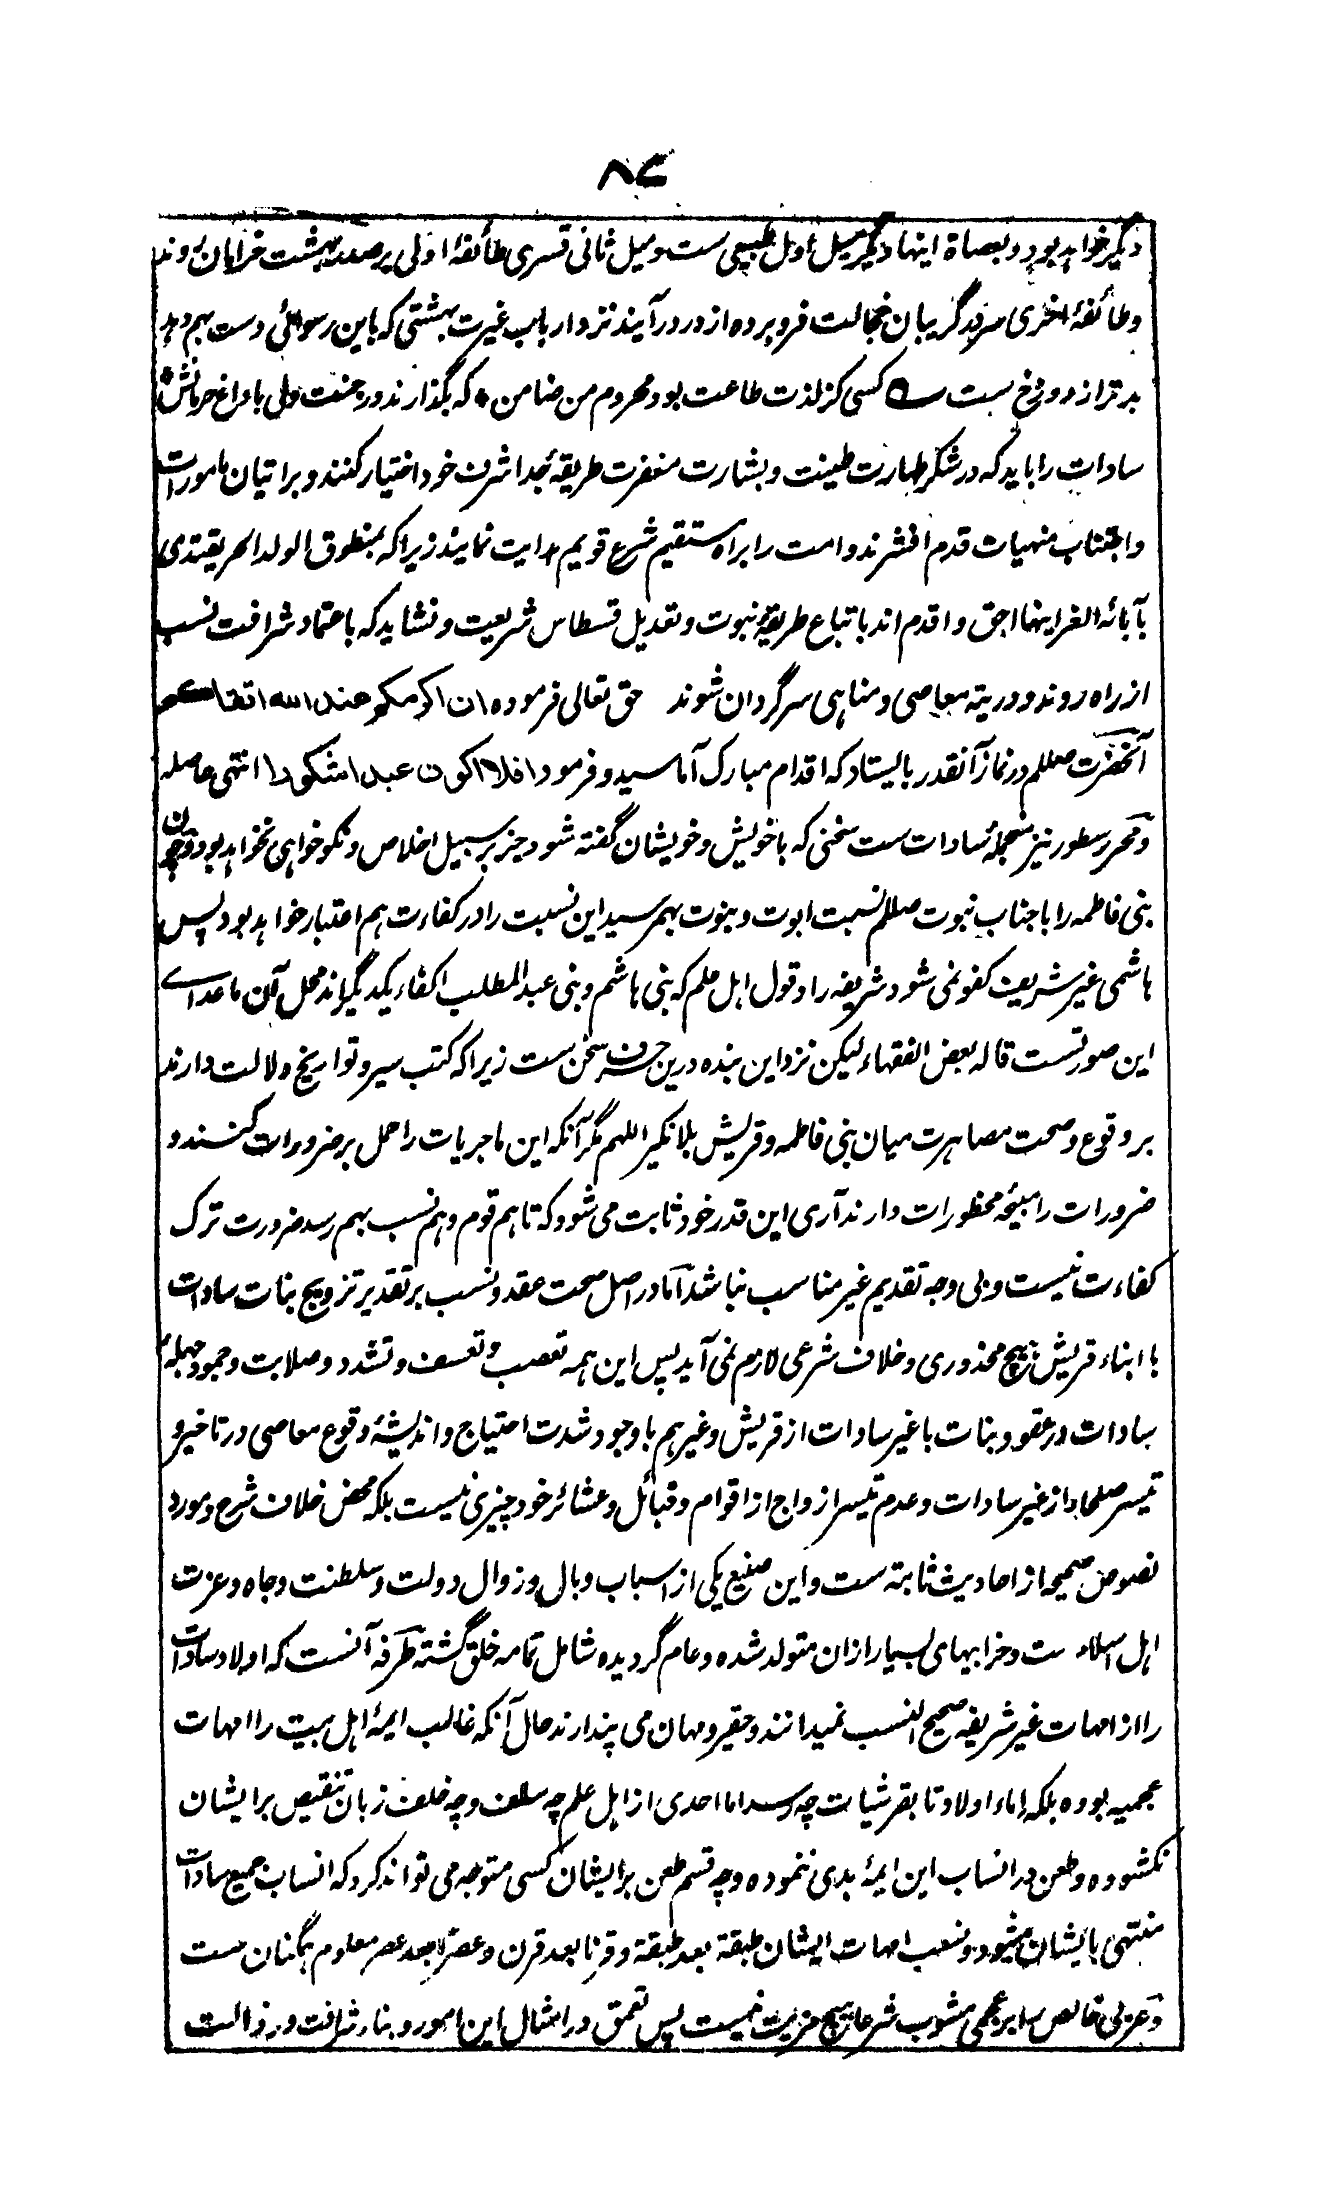 ۸۴
دیگر خواهد بود و بعصاة اینها دیگر میل اول طبیعی ست و میل ثانی قسری طائفهٔ اولی بر صدد بهشت خرامان روند
وطائفهٔ اخری سر بگریبان خجالت فرو برده از در در آیند نزد ارباب غیرت بهشتی که باین رسوائی دست بهم دهد
بدتر از دوزخ ست ؎ کسی کز لذت طاعت بود محروم من ضامن * که بگذارند در جنت ولی با داغ حرمانش *
سادات را باید که در شکر طهارت طینت و بشارت مغفرت طریقهٔ جد اشرف خود اختیار کنند و بر اتیان مامورات
واجتناب منهیات قدم افشرند و امت را براه مستقیم شرع قویم هدایت نمایند زیرا که بمنطوق الولد الحر یقتدی
بآبائه الغر اینها احق و اقدم اند باتباع طریقهٔ نبوت و تعدیل قسطاس شریعت و نشاید که باعتماد شرافت نسب
از راه روند و در تیه معاصی و مناهی سرگردان شوند حق تعالی فرموده ان اکرمکم عند الله اتقاکم
آنحضرت صلعلم در نماز آنقدر بایستاد که اقدام مبارک آماسید و فرمود افلا اکون عبدا شکورا انتهی حاصله
ومحرر سطور نیز منجملهٔ سادات ست سخنی که با خویش و خویشان گفته شود جز بر سبیل اخلاص و نکو خواهی نخواهد بود و چون
بنی فاطمه را با جناب نبوت صللم نسبت ابوت و بنوت بهم رسید این نسبت را در کفاءت هم اعتبار خواهد بود پس
هاشمی غیر شریف کفو نمی شود شریفه را و قول اهل علم که بنی هاشم و بنی عبد المطلب اکفاء یکدیگراند محل آن ماعدای
این صورتست قاله بعض الفقهاء لیکن نزد این بنده درین حرف سخن ست زیرا که کتب سیر و تواریخ دلالت دارند
بر وقوع و صحت مصاهرت میان بنی فاطمه و قریش بلا نکیر اللهم مگر آنکه این ماجریات را حمل بر ضرورات کنند و
ضرورات را مبیح محظورات دارند آری این قدر خود ثابت می شود که تا هم قوم و هم نسب بهم رسد ضرورت ترک
کفاءت نیست و بی وجه تقدیم غیر مناسب نباشد اما در اصل صحت عقد و نسب بر تقدیر تزویج بنات سادات
با ابناء قریش هیچ محذوری و خلاف شرعی لازم نمی آید پس این همه تعصب و تعسف و تشدد و صلابت و جمود جهلهٔ
سادات در عقود بنات با غیر سادات از قریش و غیر هم باوجود شدت احتیاج و اندیشهٔ وقوع معاصی در تاخیر و
تیسر صلحا از غیر سادات و عدم تیسر ازواج از اقوام و قبائل و عشائر خود چیزی نیست بلکه محض خلاف شرع و مورد
نصوص صحیحه از احادیث ثابته ست و این صنیع یکی از اسباب وبال و زوال دولت و سلطنت و جاه و عزت
اهل اسلام ست و خرابیهای بسیار ازان متولد شده و عام گردیده شامل تمامه خلق گشته طرفه آنست که اولاد سادات
را از امهات غیر شریفه صحیح النسب نمیدانند و حقیر و مهان می پندارند حال آنکه غالب ایمهٔ اهل بیت را امهات
عجمیه بوده بلکه اماء اولاد تا بقرشیات چه رسد اما احدی از اهل علم چه سلف و چه خلف زبان تنقیص بر ایشان
نکشوده و طعن در انساب این ایمهٔ بدی ننموده و چه قسم طعن بر ایشان کسی متوجه می تواند کرد که انساب جمیع سادات
منتهی بایشان میشود و نسب امهات ایشان طبقة بعد طبقة و قرنا بعد قرن و عصرا بعد عصر معلوم همگنان ست
و عربی خالص را بر عجمی مشوب شرعا هیچ مزیت نیست پس تعمق در امثال این امور و بناء شرافت و رذالت